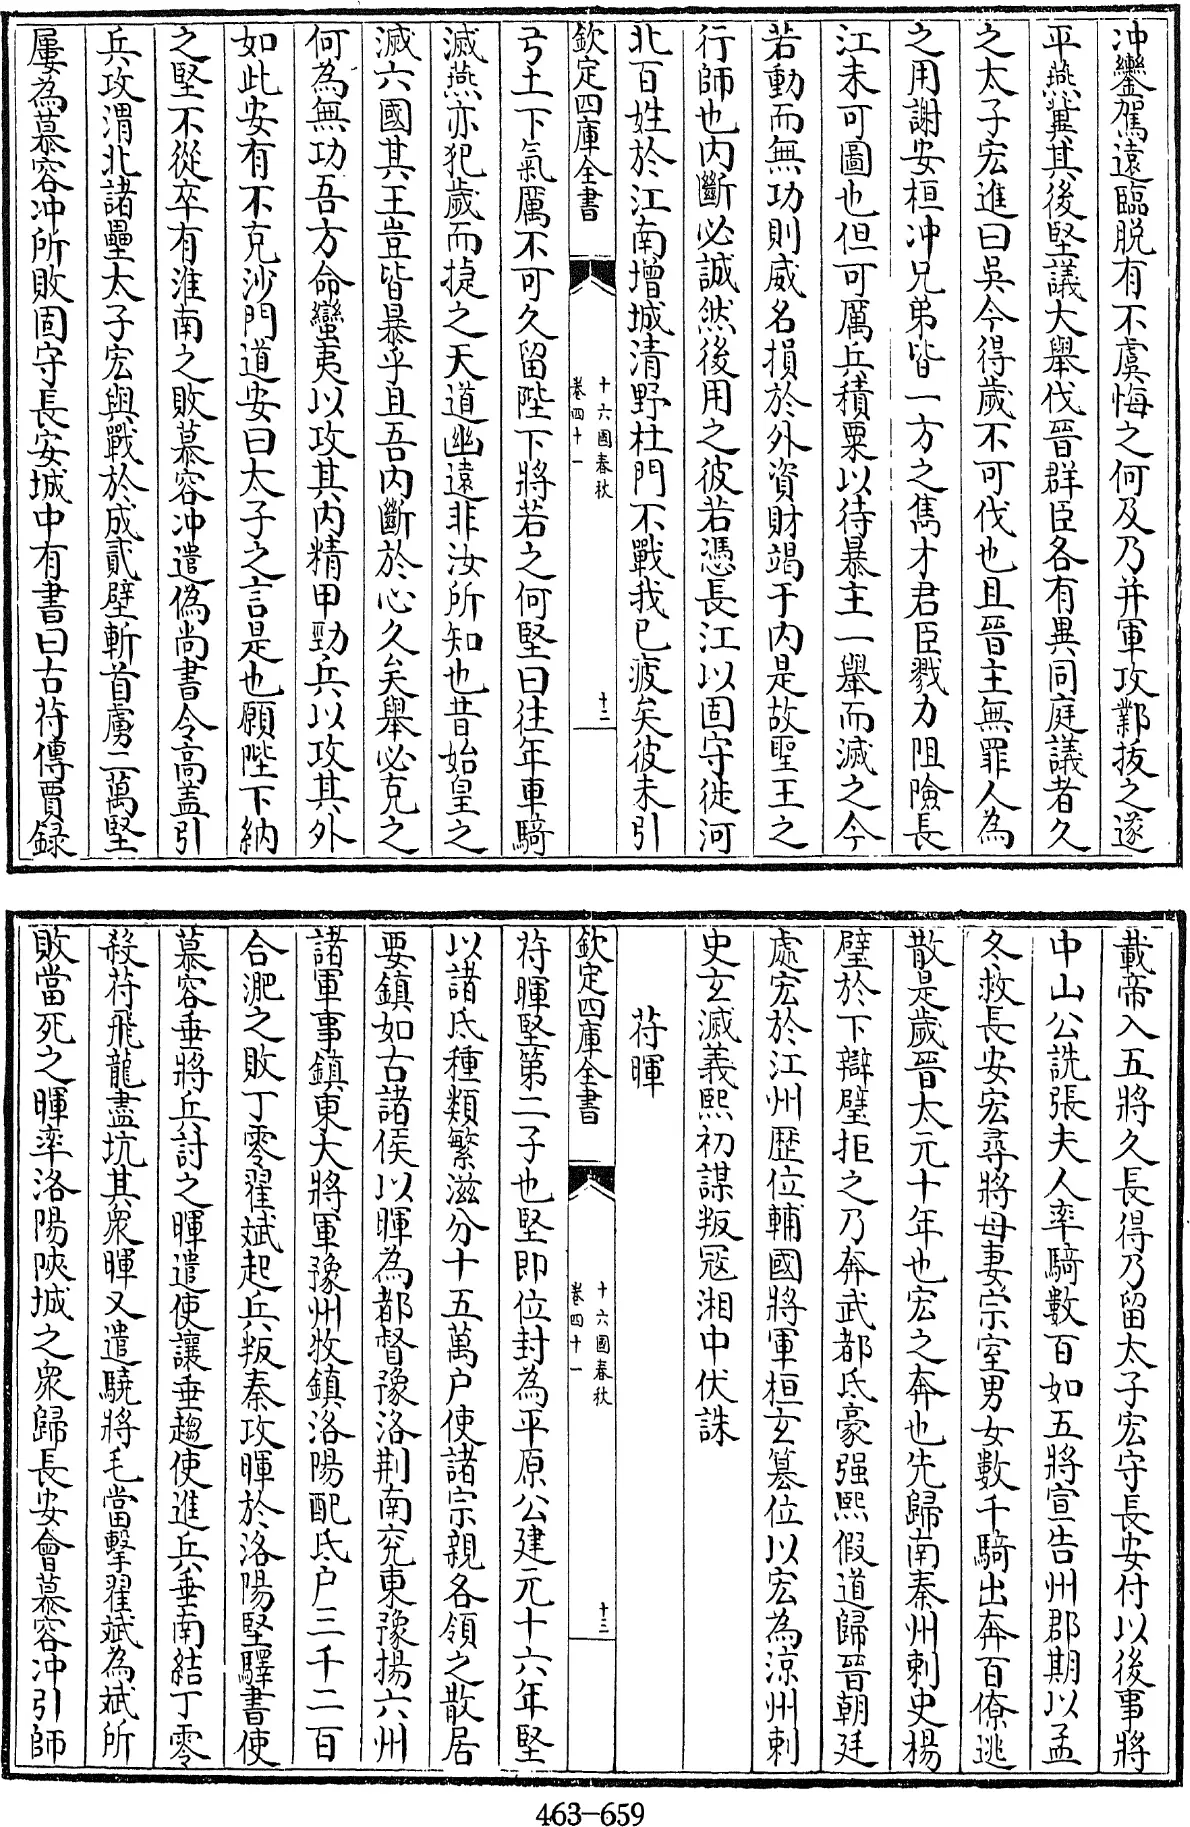 冲鑾駕遠臨脱有不虞悔之何及乃并軍攻鄴拔之遂
平燕冀其後堅議大舉伐晉群臣各有異同庭議者久
之太子宏進曰吳今得歲不可伐也且晉主無罪人為
之用謝安桓冲兄弟皆一方之雋才君臣戮力阻險長
江未可圖也但可厲兵積粟以待暴主一舉而滅之今
若動而無功則威名損於外資財竭于内是故聖王之
行師也内斷必誠然後用之彼若憑長江以固守徙河
北百姓於江南增城清野杜門不戰我已疲矣彼未引
欽定四庫全書
十六國春秋
卷四十一
十二
弓土下氣厲不可久留陛下將若之何堅曰往年車騎
滅燕亦犯歲而捷之天道幽遠非汝所知也昔始皇之
滅六國其王豈皆暴乎且吾内斷於心久矣舉必克之
何為無功吾方命蠻夷以攻其内精甲勁兵以攻其外
如此安有不克沙門道安曰太子之言是也願陛下納
之堅不從卒有淮南之敗慕容冲遣偽尚書令高盖引
兵攻渭北諸壘太子宏與戰於成貳壁斬首虜二萬堅
屢為慕容冲所敗固守長安城中有書曰古苻傳賈録
載帝入五將久長得乃留太子宏守長安付以後事將
中山公詵張夫人率騎數百如五將宣告州郡期以孟
冬救長安宏尋將母妻宗室男女數千騎出奔百僚逃
散是歲晉太元十年也宏之奔也先歸南秦州刺史楊
璧於下辯璧拒之乃奔武都氐豪强熙假道歸晉朝廷
處宏於江州歷位輔國將軍桓玄簒位以宏為涼州刺
史玄滅義熙初謀叛冦湘中伏誅
苻暉
欽定四庫全書
十六國春秋
卷四十一
十三
苻暉堅第二子也堅即位封為平原公建元十六年堅
以諸氐種類繁滋分十五萬户使諸宗親各領之散居
要鎮如古諸侯以暉為都督豫洛荆南兖東豫揚六州
諸軍事鎮東大將軍豫州牧鎮洛陽配氐户三千二百
合淝之敗丁零翟斌起兵叛秦攻暉於洛陽堅驛書使
慕容垂將兵討之暉遣使讓垂趨使進兵垂南結丁零
殺苻飛龍盡坑其衆暉又遣驍將毛當擊翟斌為斌所
敗當死之暉率洛陽陝城之衆歸長安會慕容冲引師
463-659